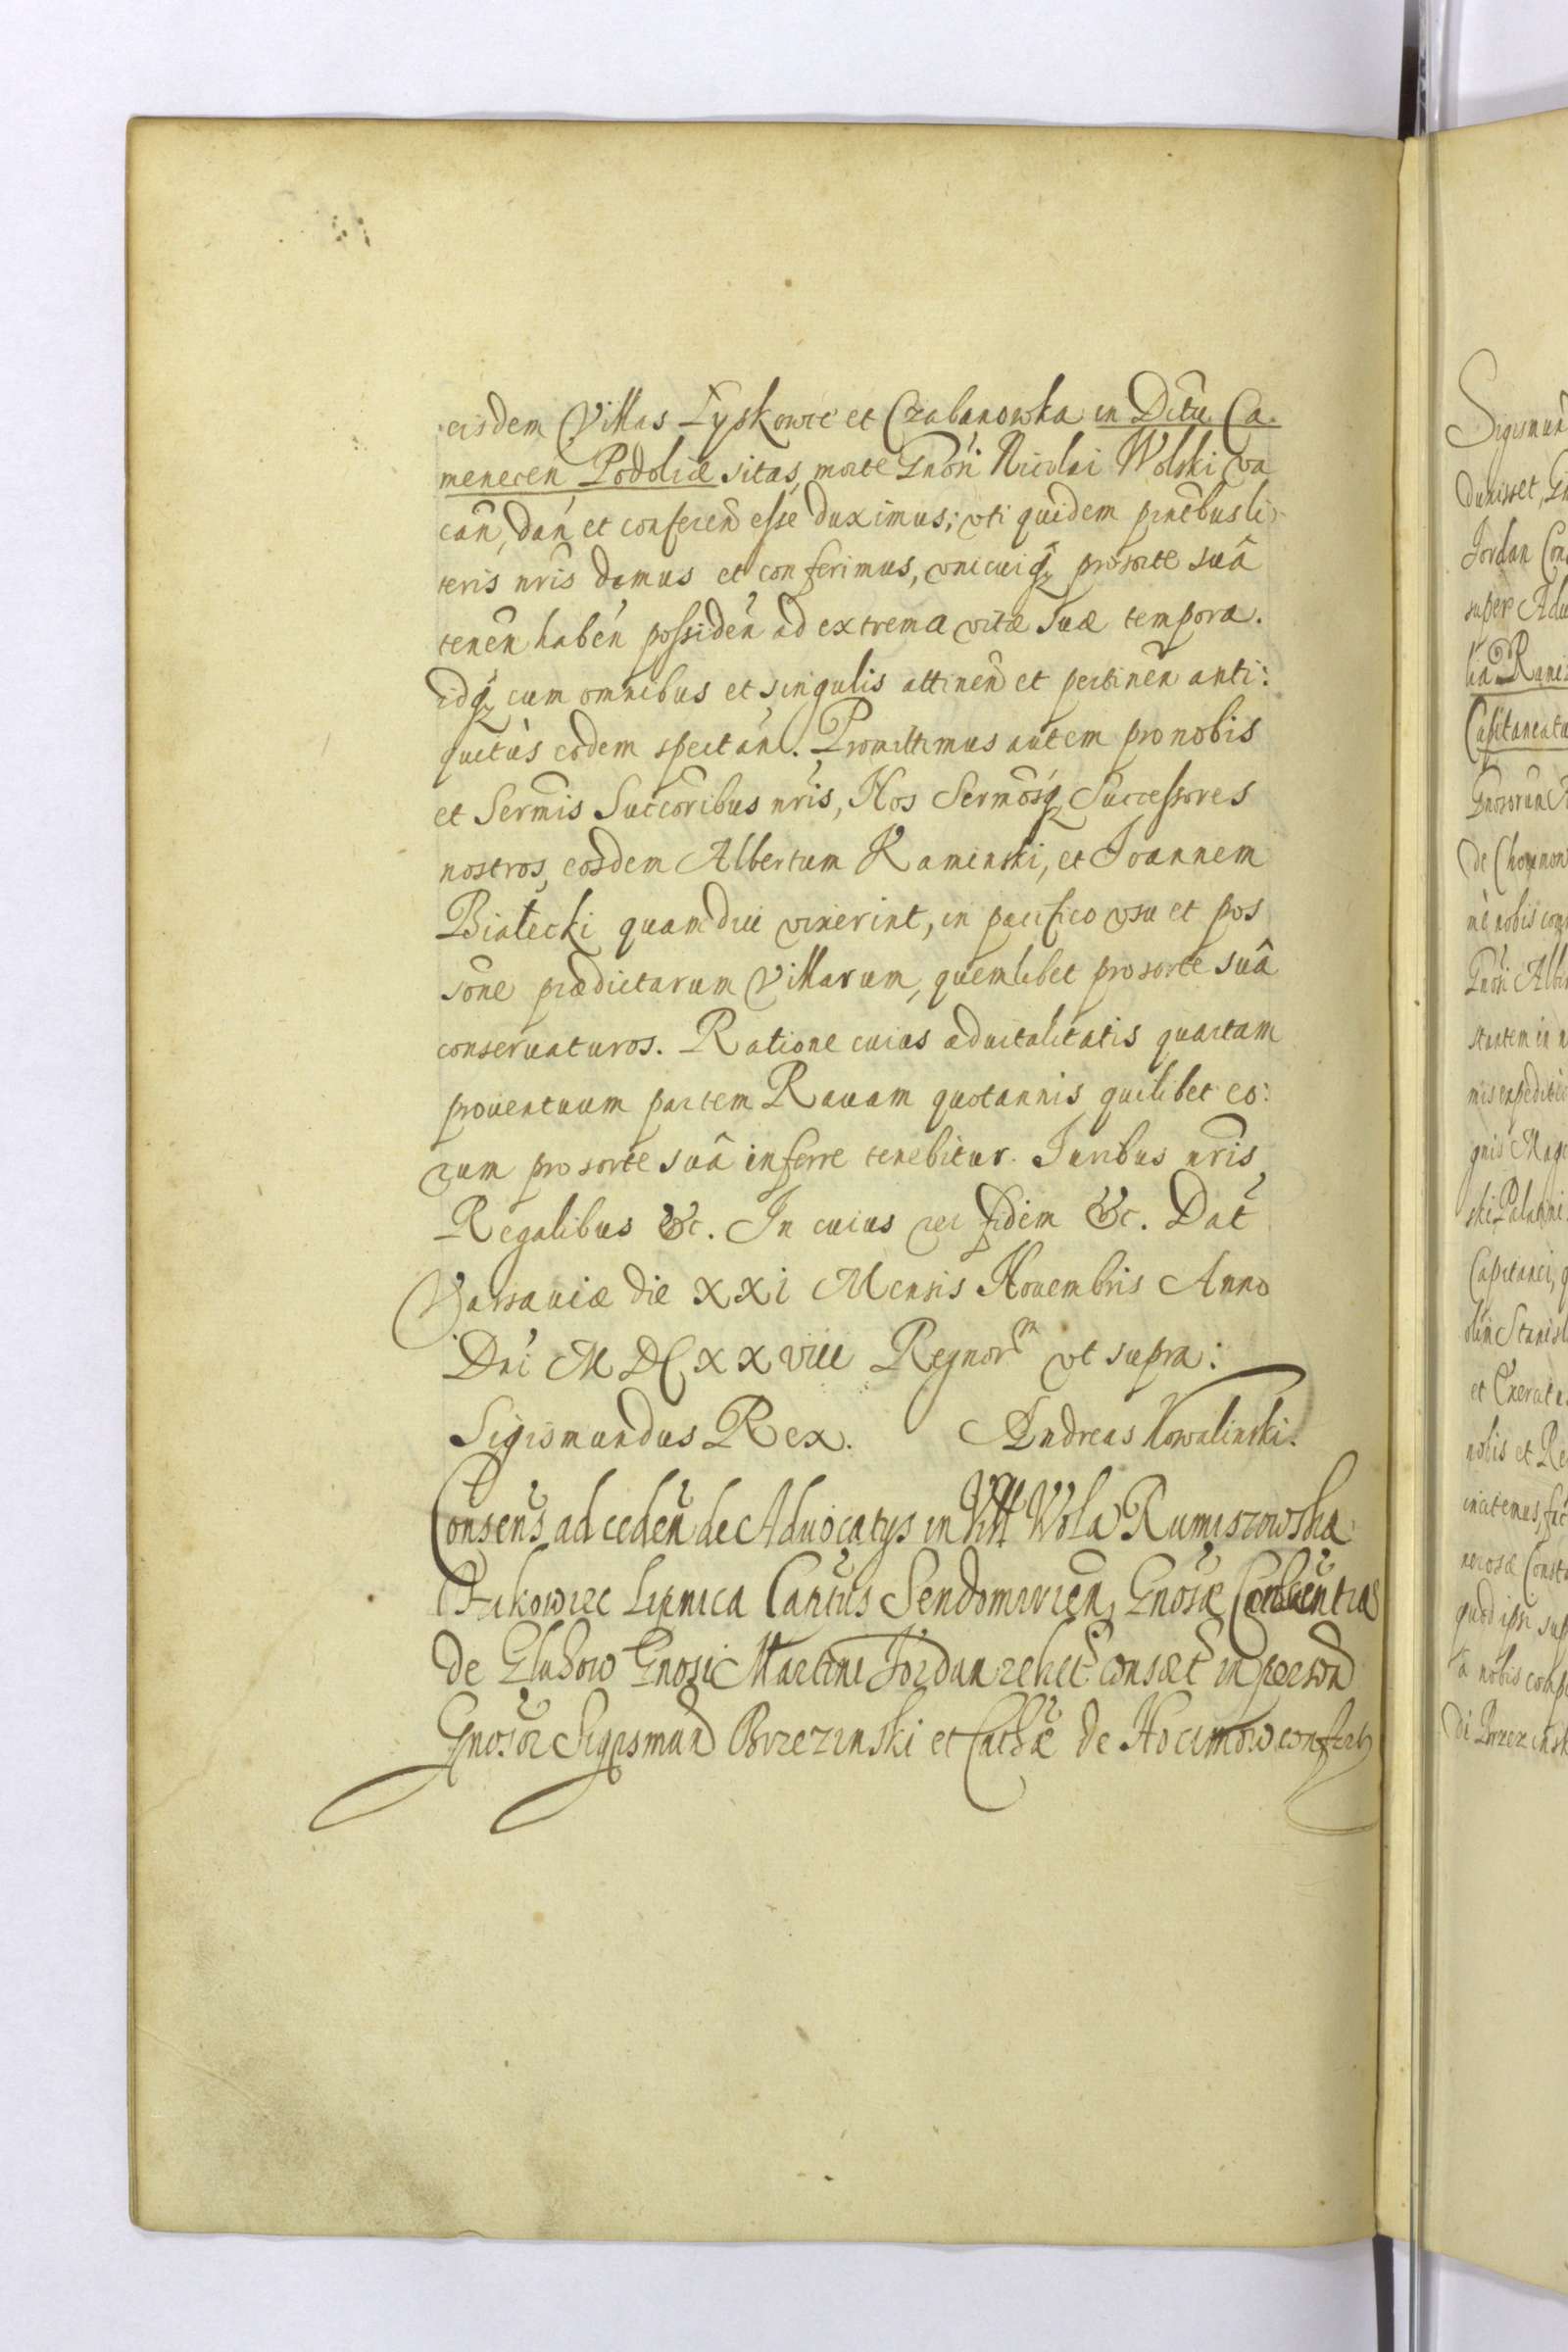 eisdem Villas Łyskowce et Czabanowka in Dctu Ca.
menecen Podoliæ sitas, morte Gnosi Nicolai Wolski va
can, dan et conferen esse duximus; vti quidem pntibus li
teris nris damus et conferimus, vnicuiq pro sorte suâ
tenen haben possiden ad extrema vitæ suæ tempora.
idq cum omnibus et singulis attinen et pertinen anti:
quitùs eodem spectan. Promittimus autem pro nobis
et Sermis Succoribus nris, Nos Sermosq Successores
nostros, eosdem Albertum Kaminski, et Joannem
Białecki quamdiu vixerint, in pacifico vsu et pos
sone prædictarum Villarum, quemlibet pro sorte suâ
conseruaturos. Ratione cuius aduitalitatis quartam
prouentuum partem Rauam quotannis quilibet eo:
rum pro sorte suâ inferre tenebitur. Juribus nris
Regalibus &c. In cuius rei fidem &c. Dat
Varsauiæ die XXI Mensis Nouembris Anno
Dni MDCXXVIII Regnorm vt supra:
Sigismundus Rex. Andreas Kowalinski.
Consens ad ceden de Aduocatys in Vill Wola Rumiszowska
Lipnica Captus Sendomirien, Gnosæ
de Gluhow Gnosi Martini Jordan relict consort in person
Gnosor Sigismund Brzezinski et Cathæ de Hocimow confert
Sigismun
duxisset, Gn
Jordan Con
super Adu
lia Rumiz
Capitaneatu
Gnosorum
de
nobis con
Gnosi Alb
stantem in n
mis expeditio
gnis Mag
ski Palatini
Capitanei, q
olim Stanisl
et
nobis et Re
Const
quod ipsi sup
a nobis comp
di Brzezinsk